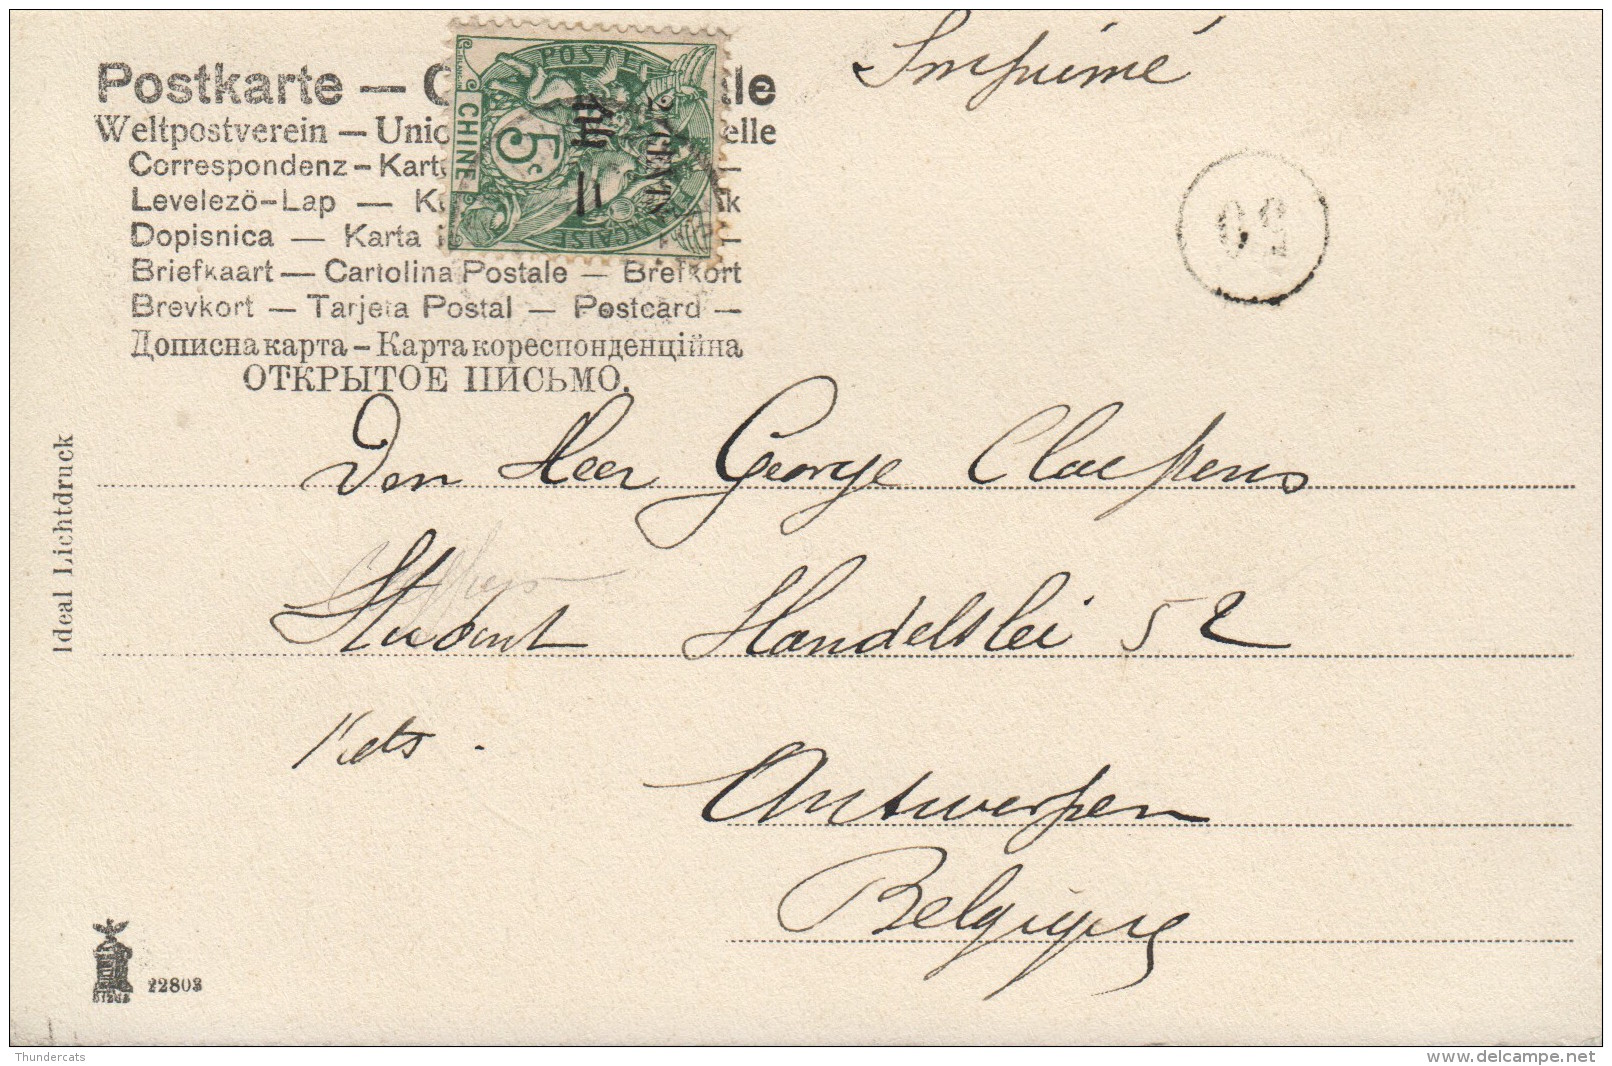 Imprimé
Postkarte — C
Weltpostverein — Unio elle
Correspondenz – Kart
Levelezö–Lap — K k
Dopisnica — Karta
Briefkaart — Cartolina Postale — Brefkort
Brevkort — Tarjeta Postal — Postcard —
Дописна карта – Карта кореспонденційна
ОТКРЫТОЕ ПИСЬМО.
POSTE
FRANÇAISE
CHINE
5c
2 CENTS
仙二
Ideal Lichtdruck
Den Heer George Claepens
Student Handelslei 52
Antwerpen
Belgique
22803
Thundercats
www.delcampe.net